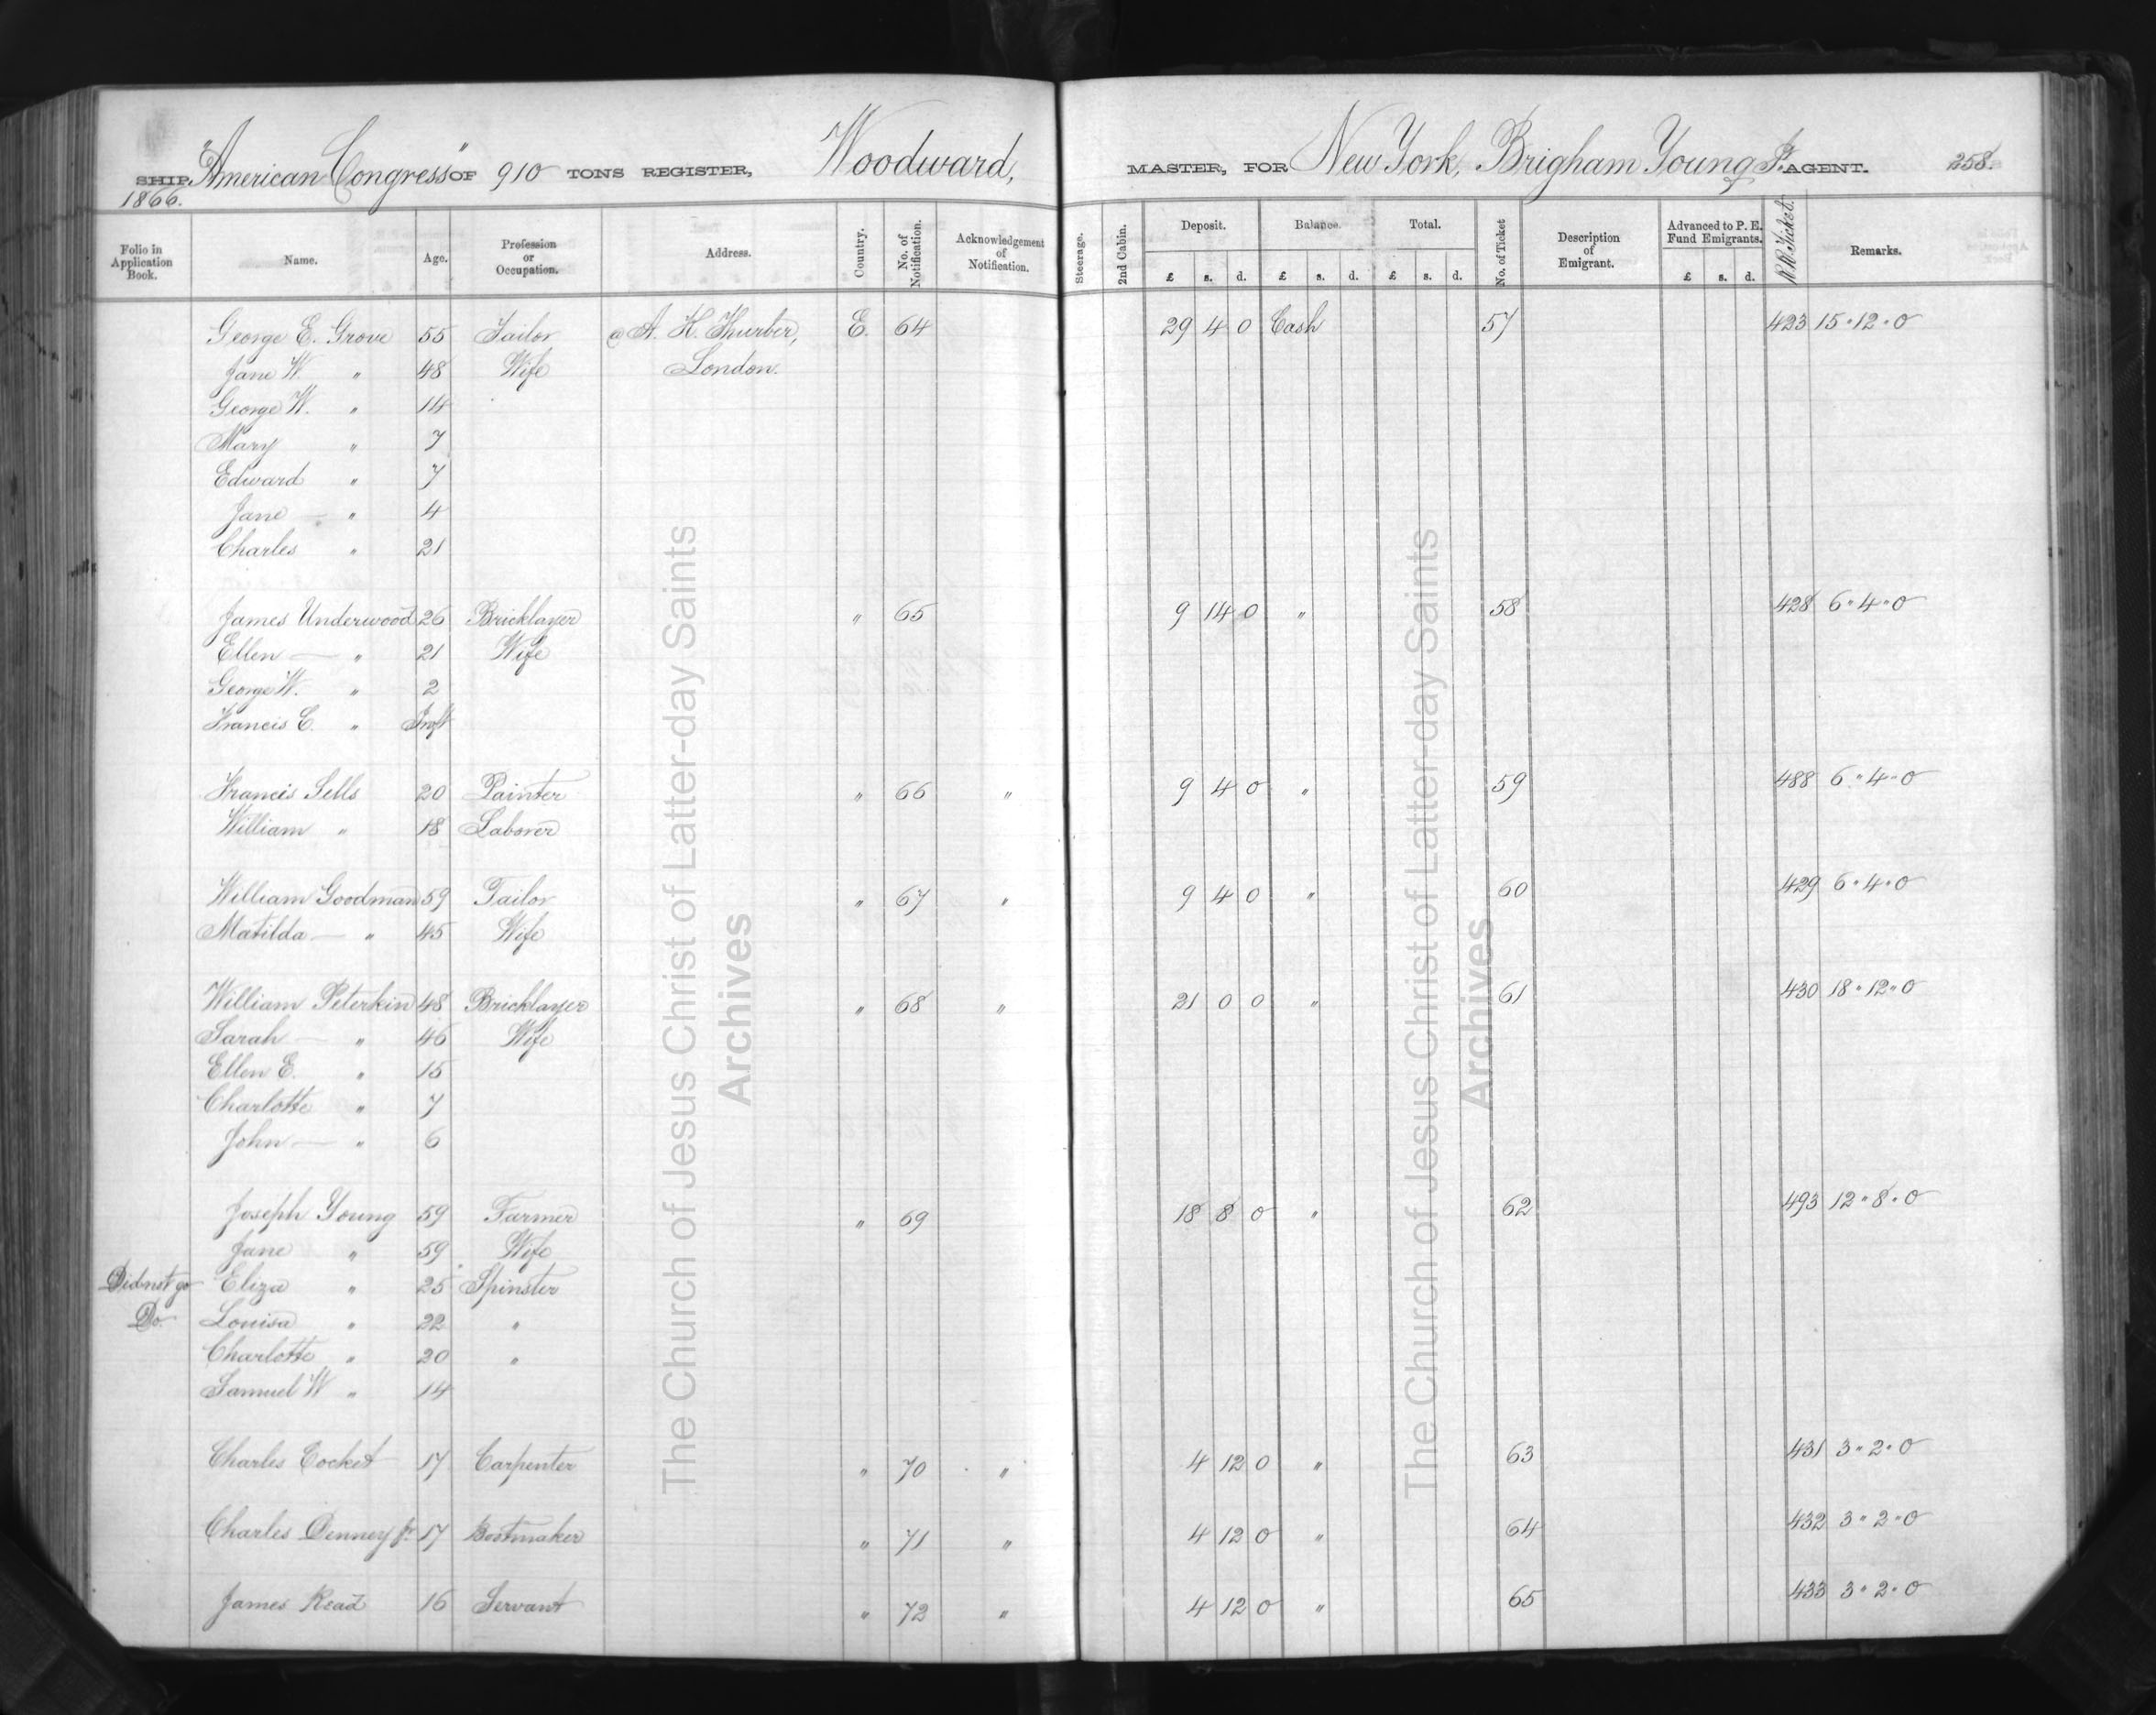 SHIP "American Congress" OF 910 TONS REGISTER, Woodward, MASTER, FOR New York, Brigham Young Jr. AGENT. 258.
1866.
Folio in Application Book. Name. Age. Profession or Occupation. Address. Country. No. of Notification. Acknowledgement of Notification. Steerage. 2nd Cabin. Deposit. Balance. Total. No. of Ticket Description of Emigrant. Advanced to P. E. Fund Emigrants. R R Ticket. Remarks.
£ s. d. £ s. d. £ s. d. £ s. d.
George E. Grove 55 Tailor @ A. K. Thurber, E. 64 29 4 0 Cash 57 423 15 " 12 " 0
Jane W. " 48 Wife London.
George W. " 14
Mary " 7
Edward " 7
Jane — " 4
Charles " 21
James Underwood 26 Bricklayer " 65 9 14 0 " 58 428 6 " 4 " 0
Ellen — " 21 Wife
George W. " 2
Francis C. " Inft
Francis Sells 20 Painter " 66 " 9 4 0 " 59 488 6 " 4 " 0
William " 18 Laborer
William Goodman 59 Tailor " 67 " 9 4 0 " 60 429 6 " 4 " 0
Matilda — " 45 Wife
William Peterkin 48 Bricklayer " 68 " 21 0 0 " 61 430 18 " 12 " 0
Sarah — " 46 Wife
Ellen E. " 15
Charlotte " 7
John — " 6
Joseph Young 59 Farmer " 69 18 8 0 " 62 493 12 " 8 " 0
Jane " 59 Wife
Did not go Eliza " 25 Spinster
Do. Louisa " 22 "
Charlotte " 20 "
Samuel W " 14
Charles Cocket 17 Carpenter " 70 " 4 12 0 " 63 431 3 " 2 " 0
Charles Denney Jr. 17 Bootmaker " 71 " 4 12 0 " 64 432 3 " 2 " 0
James Read 16 Servant " 72 " 4 12 0 " 65 433 3 " 2 " 0
The Church of Jesus Christ of Latter-day Saints
Archives
The Church of Jesus Christ of Latter-day Saints
Archives